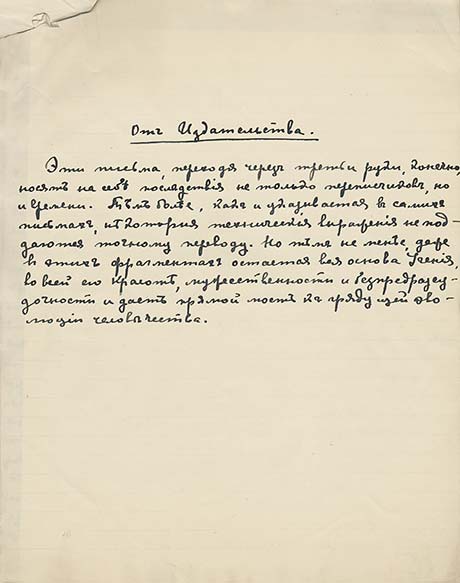 Отъ Издательства.
Эти письма, переходя черезъ третьи руки, конечно,
носятъ на себѣ последствія не только переписчиковъ, но
и времени. Тѣмъ болѣе, какъ и указывается в самихъ
письмахъ, нѣкоторыя техническія выраженія не под-
даются точному переводу. Но тѣмъ не менѣе, даже
в этихъ фрагментахъ остается вся основа Ученія,
во всей его красотѣ, мужественности и безпредразсу-
дочности и даетъ прямой мостъ къ грядущей эво-
люціи человѣчества.